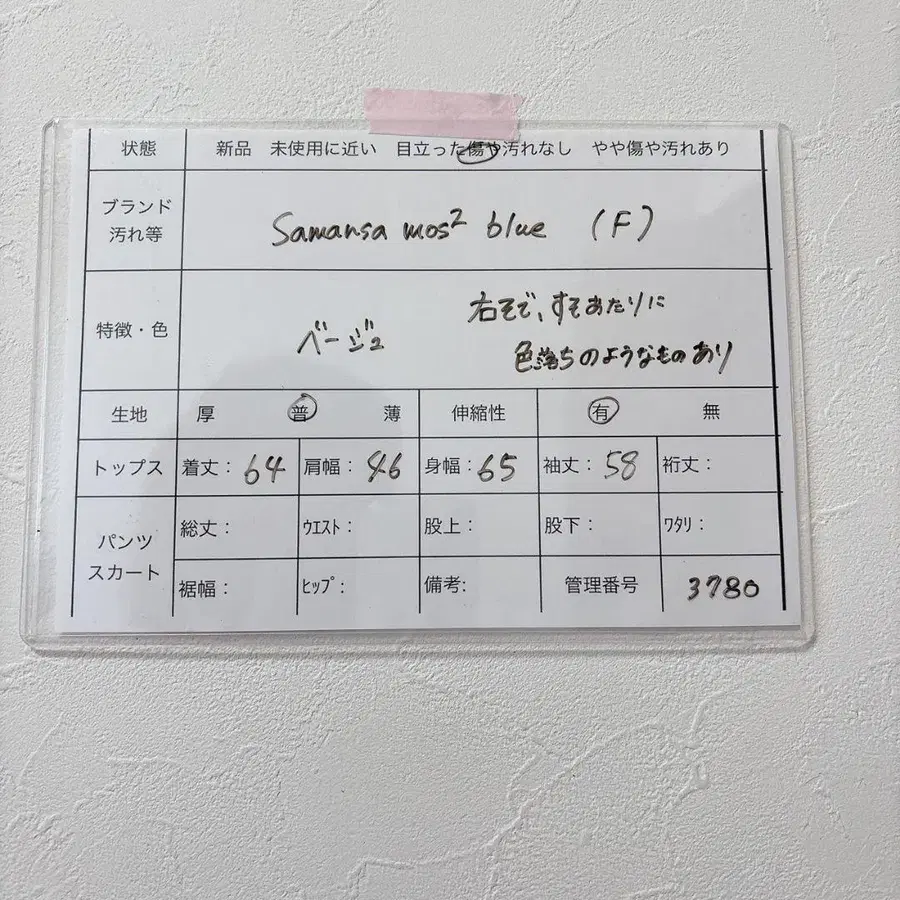 状態 新品 未使用に近い 目立った傷や汚れなし やや傷や汚れあり
ブランド
汚れ等
Samansa mos² blue (F)
特徴・色
ベージュ
右そで、すそあたりに
色落ちのようなものあり
生地 厚 普 薄 伸縮性 有 無
トップス 着丈：64 肩幅：46 身幅：65 袖丈：58 裄丈：
パンツ
スカート
総丈： ｳｴｽﾄ： 股上： 股下： ﾜﾀﾘ：
裾幅： ﾋｯﾌﾟ： 備考: 管理番号 3780